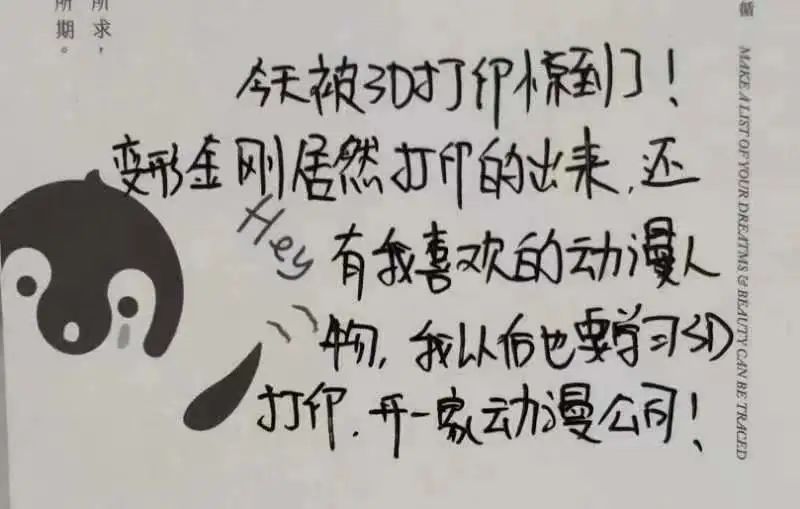 所求，
所期。
循
MAKE A LIST OF YOUR DREATMS & BEAUTY CAN BE TRACED
今天被3D打印惊到了！
变形金刚居然打印的出来，还
有我喜欢的动漫人
物，我以后也要学习3D
打印，开一家动漫公司！
Hey